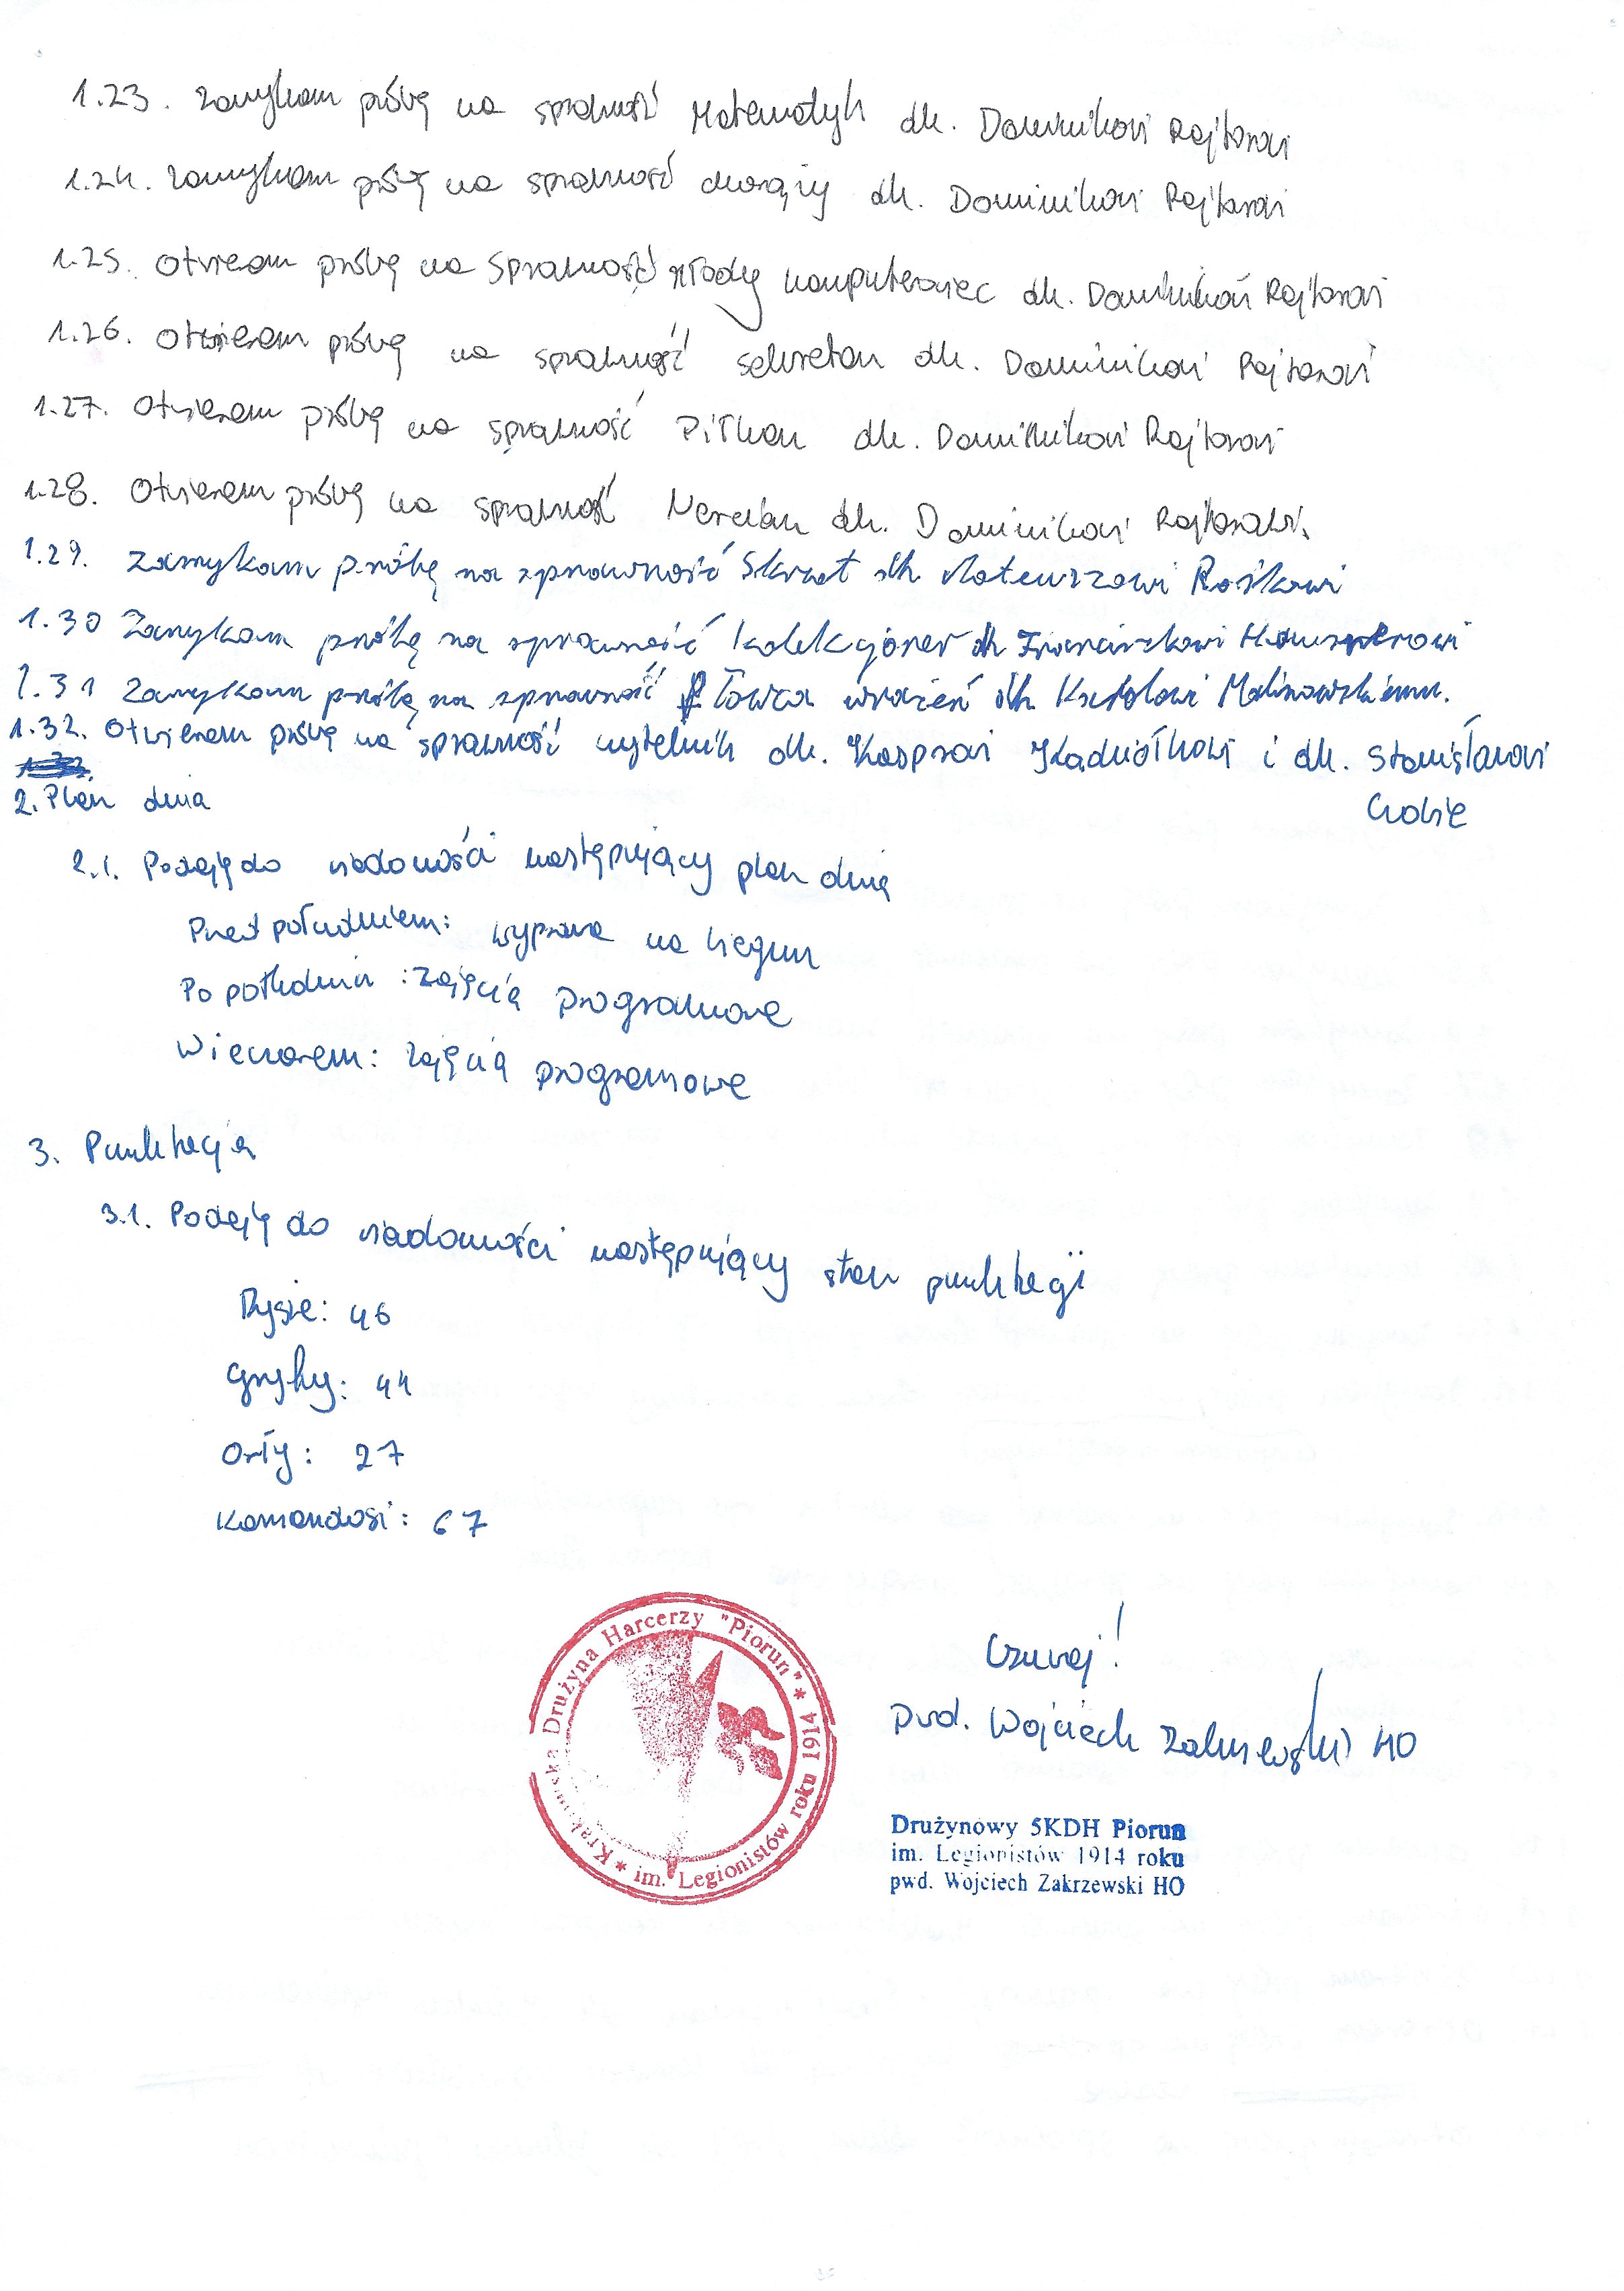 1.23. Zamykam próbę na sprawność Matematyk dh. Dominikowi Rajtarowi
1.24. Zamykam próbę na sprawność chorąży dh. Dominikowi Rajtarowi
1.25. Otwieram próbę na sprawność młody komputerowiec dh. Dominikowi Rajtarowi
1.26. Otwieram próbę na sprawność sekretarz dh. Dominikowi Rajtarowi
1.27. Otwieram próbę na sprawność Piłkarz dh. Dominikowi Rajtarowi
1.28. Otwieram próbę na sprawność Narciarz dh. Dominikowi Rajtarowi.
1.29. Zamykam próbę na sprawność Skrzat dh. Mateuszowi Rośkowi
1.30 Zamykam próbę na sprawność kolekcjoner dh Franciszkowi
1.31 Zamykam próbę na sprawność Łowca wrażeń dh Karolowi Malinowskiemu.
1.32. Otwieram próbę na sprawność czytelnik dh. Kasprowi Kądziołkowi i dh. Stanisławowi
2. Plan dnia
2.1. Podaję do wiadomości następujący plan dnia
Przed południem: wyprawa na biegun
Po południu: zajęcia programowe
Wieczorem: zajęcia programowe
3. Punktacja
3.1. Podaję do wiadomości następujący stan punktacji
Rysie: 46
Gryfy: 44
Orły: 27
Komandosi: 67
Krakowska Drużyna Harcerzy "Piorun" * im. Legionistów roku 1914 *
Czuwaj!
pwd. Wojciech Zakrzewski HO
Drużynowy 5KDH Piorun
im. Legionistów 1914 roku
pwd. Wojciech Zakrzewski HO